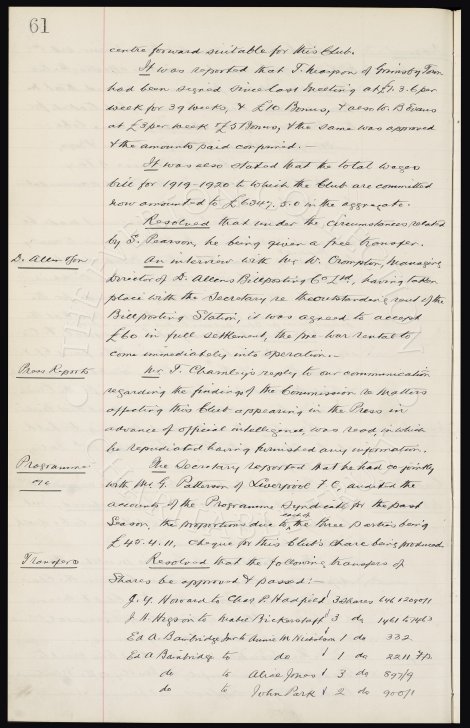 61
centre forward suitable for this Club.
It was reported that T. Mayson of Grimsby Town
had been signed since last meeting at £7. 3. 6 per
week for 39 weeks, & £10 Bonus, & also W. B Evans
at £3 per week & £5 Bonus, & the same was approved
& the amounts paid confirmed. —
It was also stated that the total wages
bill for 1919-1920 to which the Club are committed
now amounted to £6347. 5. 0 in the aggregate.
Resolved that under the circumstances related
by S. Pearson, he being given a free transfer.
D. Allen & Son
An interview with Mr W. Crompton, Managing
Director of D. Allens Billposting Co Ltd, having taken
place with the Secretary re the outstanding rent of the
Billposting Station, it was agreed to accept
£60 in full settlement, the pre war rental to
come immediately into operation. —
Press Reports
Mr T. Charnley's reply to our communication
regarding the findings of the Commission re matters
affecting this Club appearing in the Press in
advance of official intelligence, was read, in which
he repudiated having furnished any information.
Programme
a/c
The Secretary reported that he had conjointly
with Mr G. Patterson of Liverpool F.C, audited the
accounts of the Programme Syndicate for the past
Season, the proportions due to each of the three parties being
£45. 4. 11, cheque for this Club's share being produced
Transfers
Resolved that the following transfers of
Shares be approved & passed: —
J. Y. Howard to Chas P. Hadfield 3 Shares
J. H. Higson to Mabel Bickerstaff 3 do 1461 to 1463
Ed A. Bainbridge Jnr to Annie M. Nicholson 1 do 332
Ed A Bainbridge to do 1 do 2211
do to Alice Jones 3 do 897/9
do to John Park 2 do 900/1